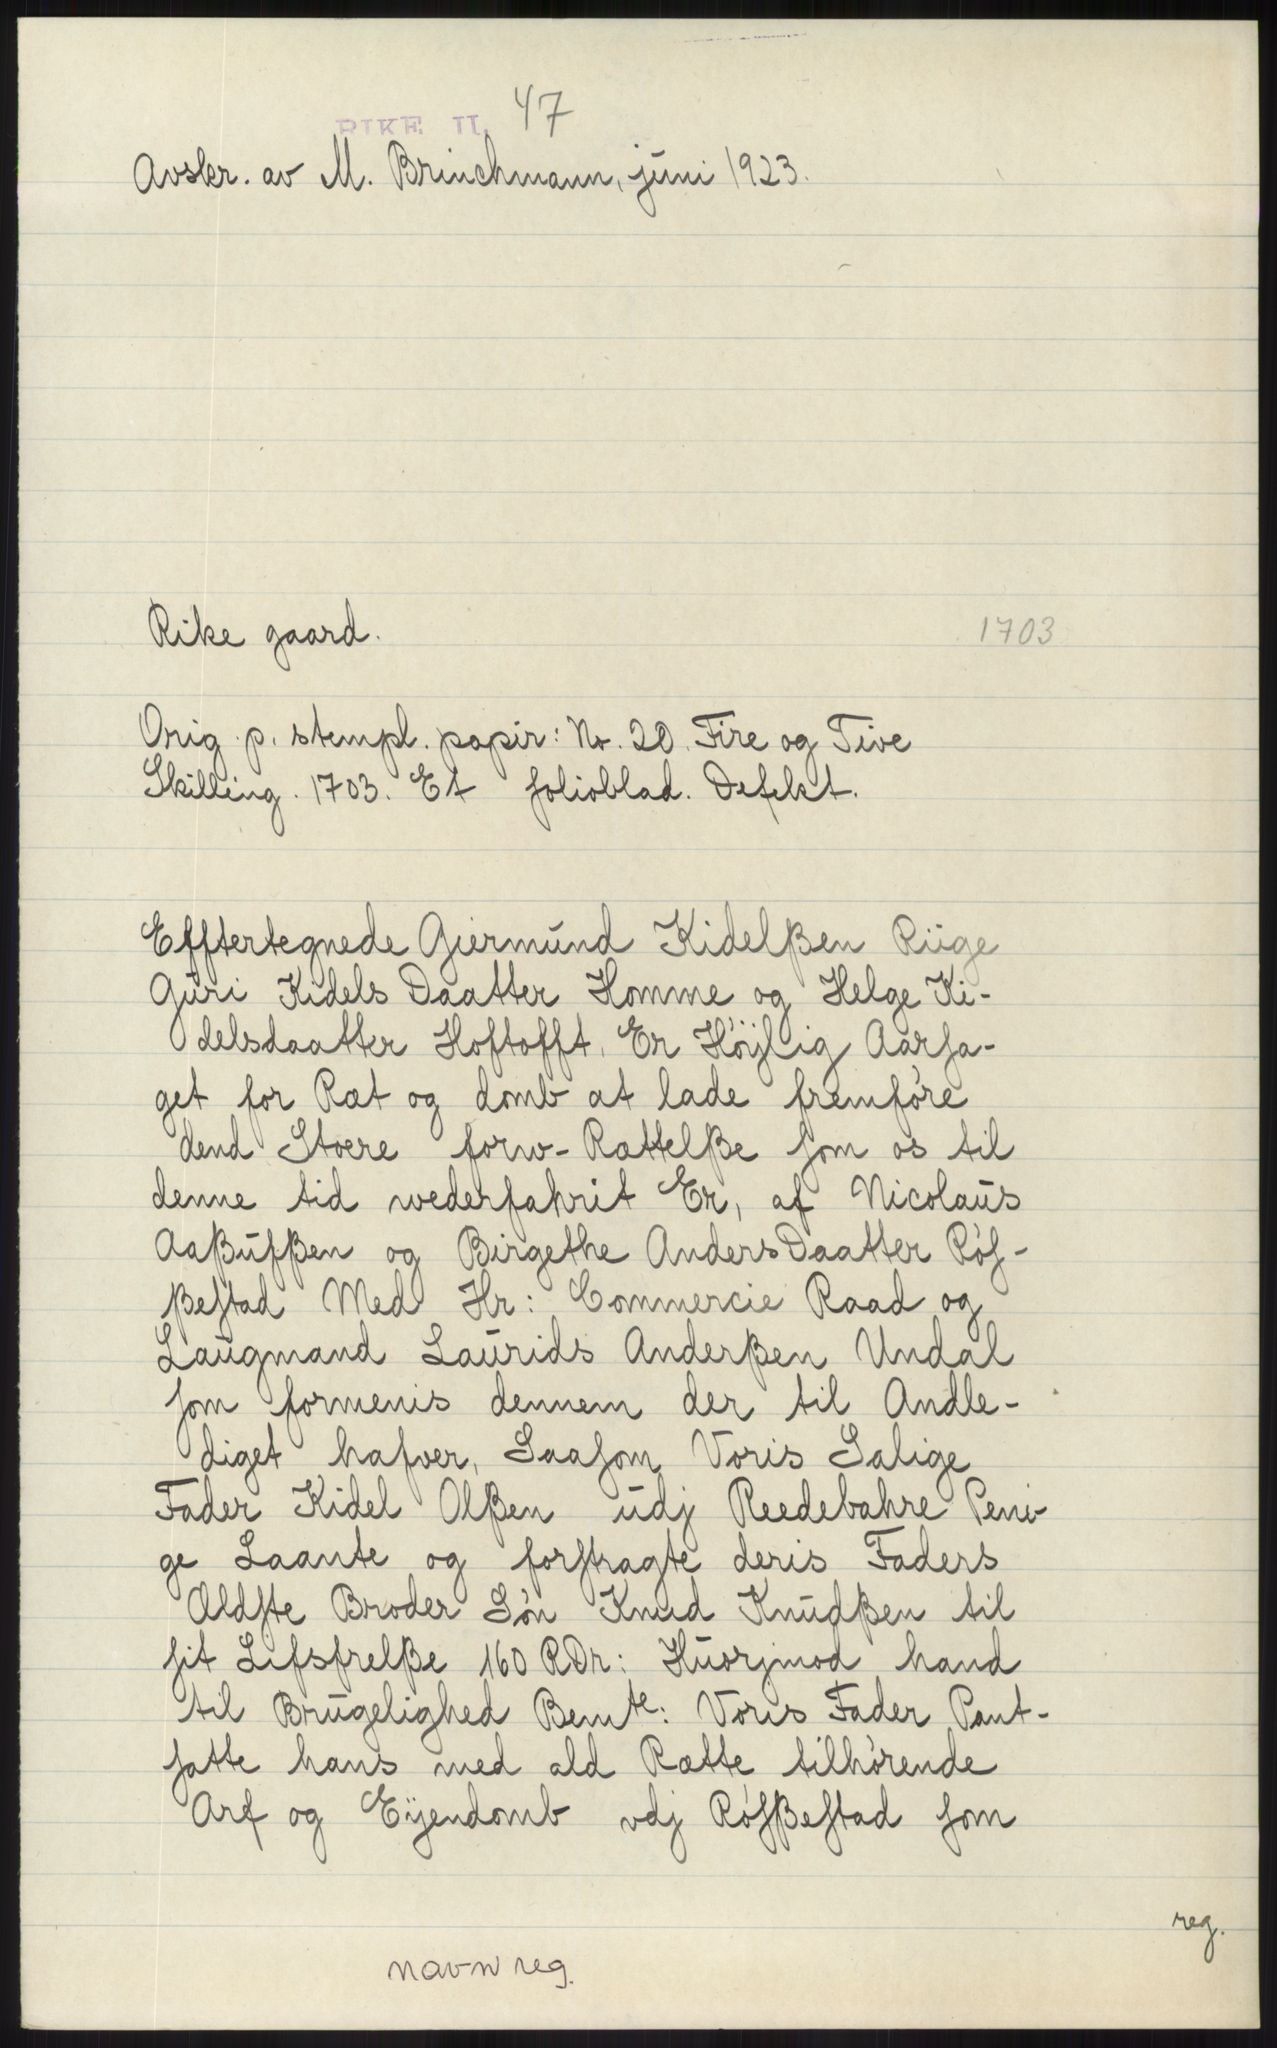 RIKE II. 47
Avskr. av M. Brinchmann, juni 1923.
Rike gaard.
1703
Orig. p. stempl. papir: No. 20. Fire og Tive
Skilling. 1703. Et folioblad. Defekt.
Efftertegnede Giermund Kidelßen Riige
Guri Kidels Daatter Homme og Helge Ki-
delsdaatter Hoftofft, Er Höÿlig Aarſa-
get for Ræt og domb at lade fremføre
dend Stoere forw-Rættelße ſom os til
denne tid wederfahrit Er, af Nicolaus
Aaßuſßen og Birgethe Anders Daatter Røſ-
ßeſtad Med Hr: Commercie Raad og
Laugmand Laurids Anderßen Undal
ſom formenis dennem der til Andle-
diget hafver, Saaſom Voris Salige
Fader Kidel Olßen udj Reedebahre Peni-
ge Laante og forſtragte deris Faders
Ældſte Broder Søn Knud Knudßen til
ſit Lifsfrelße 160 RDr: Huorjmod hand
til Brugelighed Bemte: Voris Fader Pant-
ſatte hans med ald Rætte tilhørende
Arf og Eÿendomb vdj Røſßeſtad ſom
reg.
navn reg.